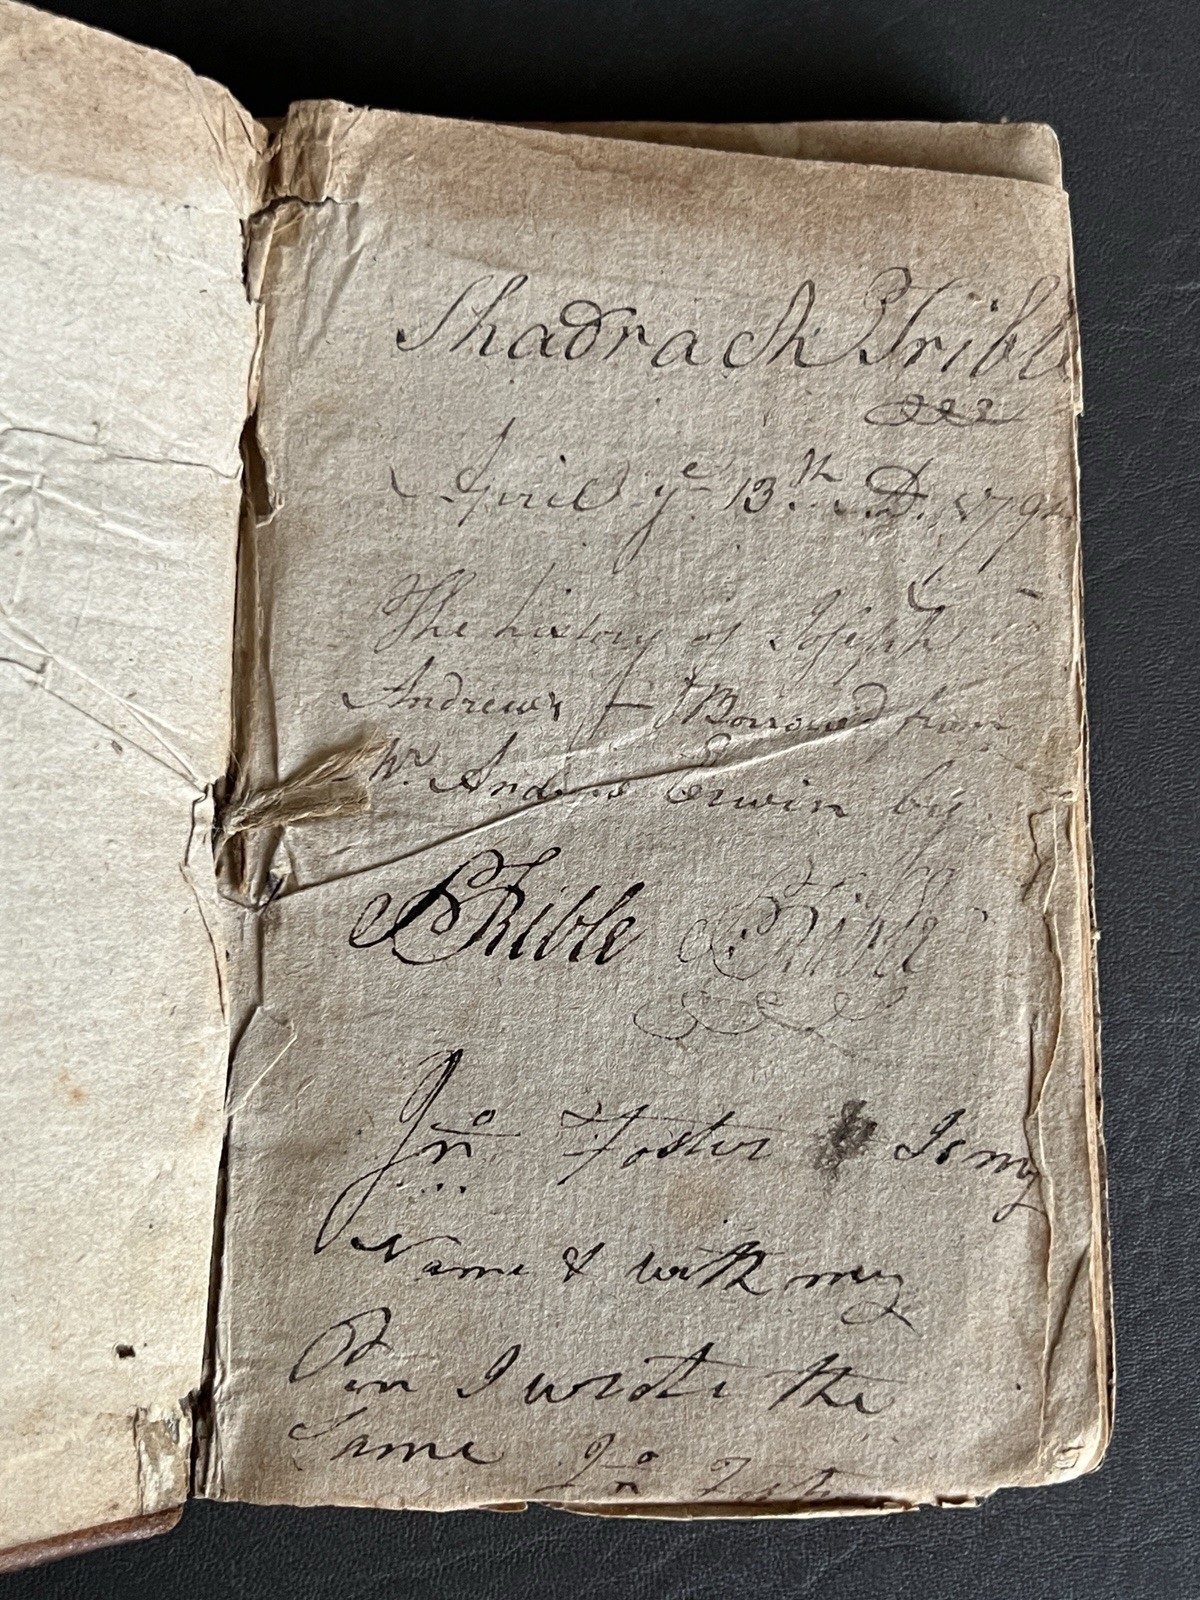 Shadrach Trible
April ye 13th A.D. 179
The history of Joseph
Andrews — Borrowed from
Mr. Andrew Erwin by
STrible STrible
Jno Foster Is my
Name & with my
Pen I wrote the
Same Jno